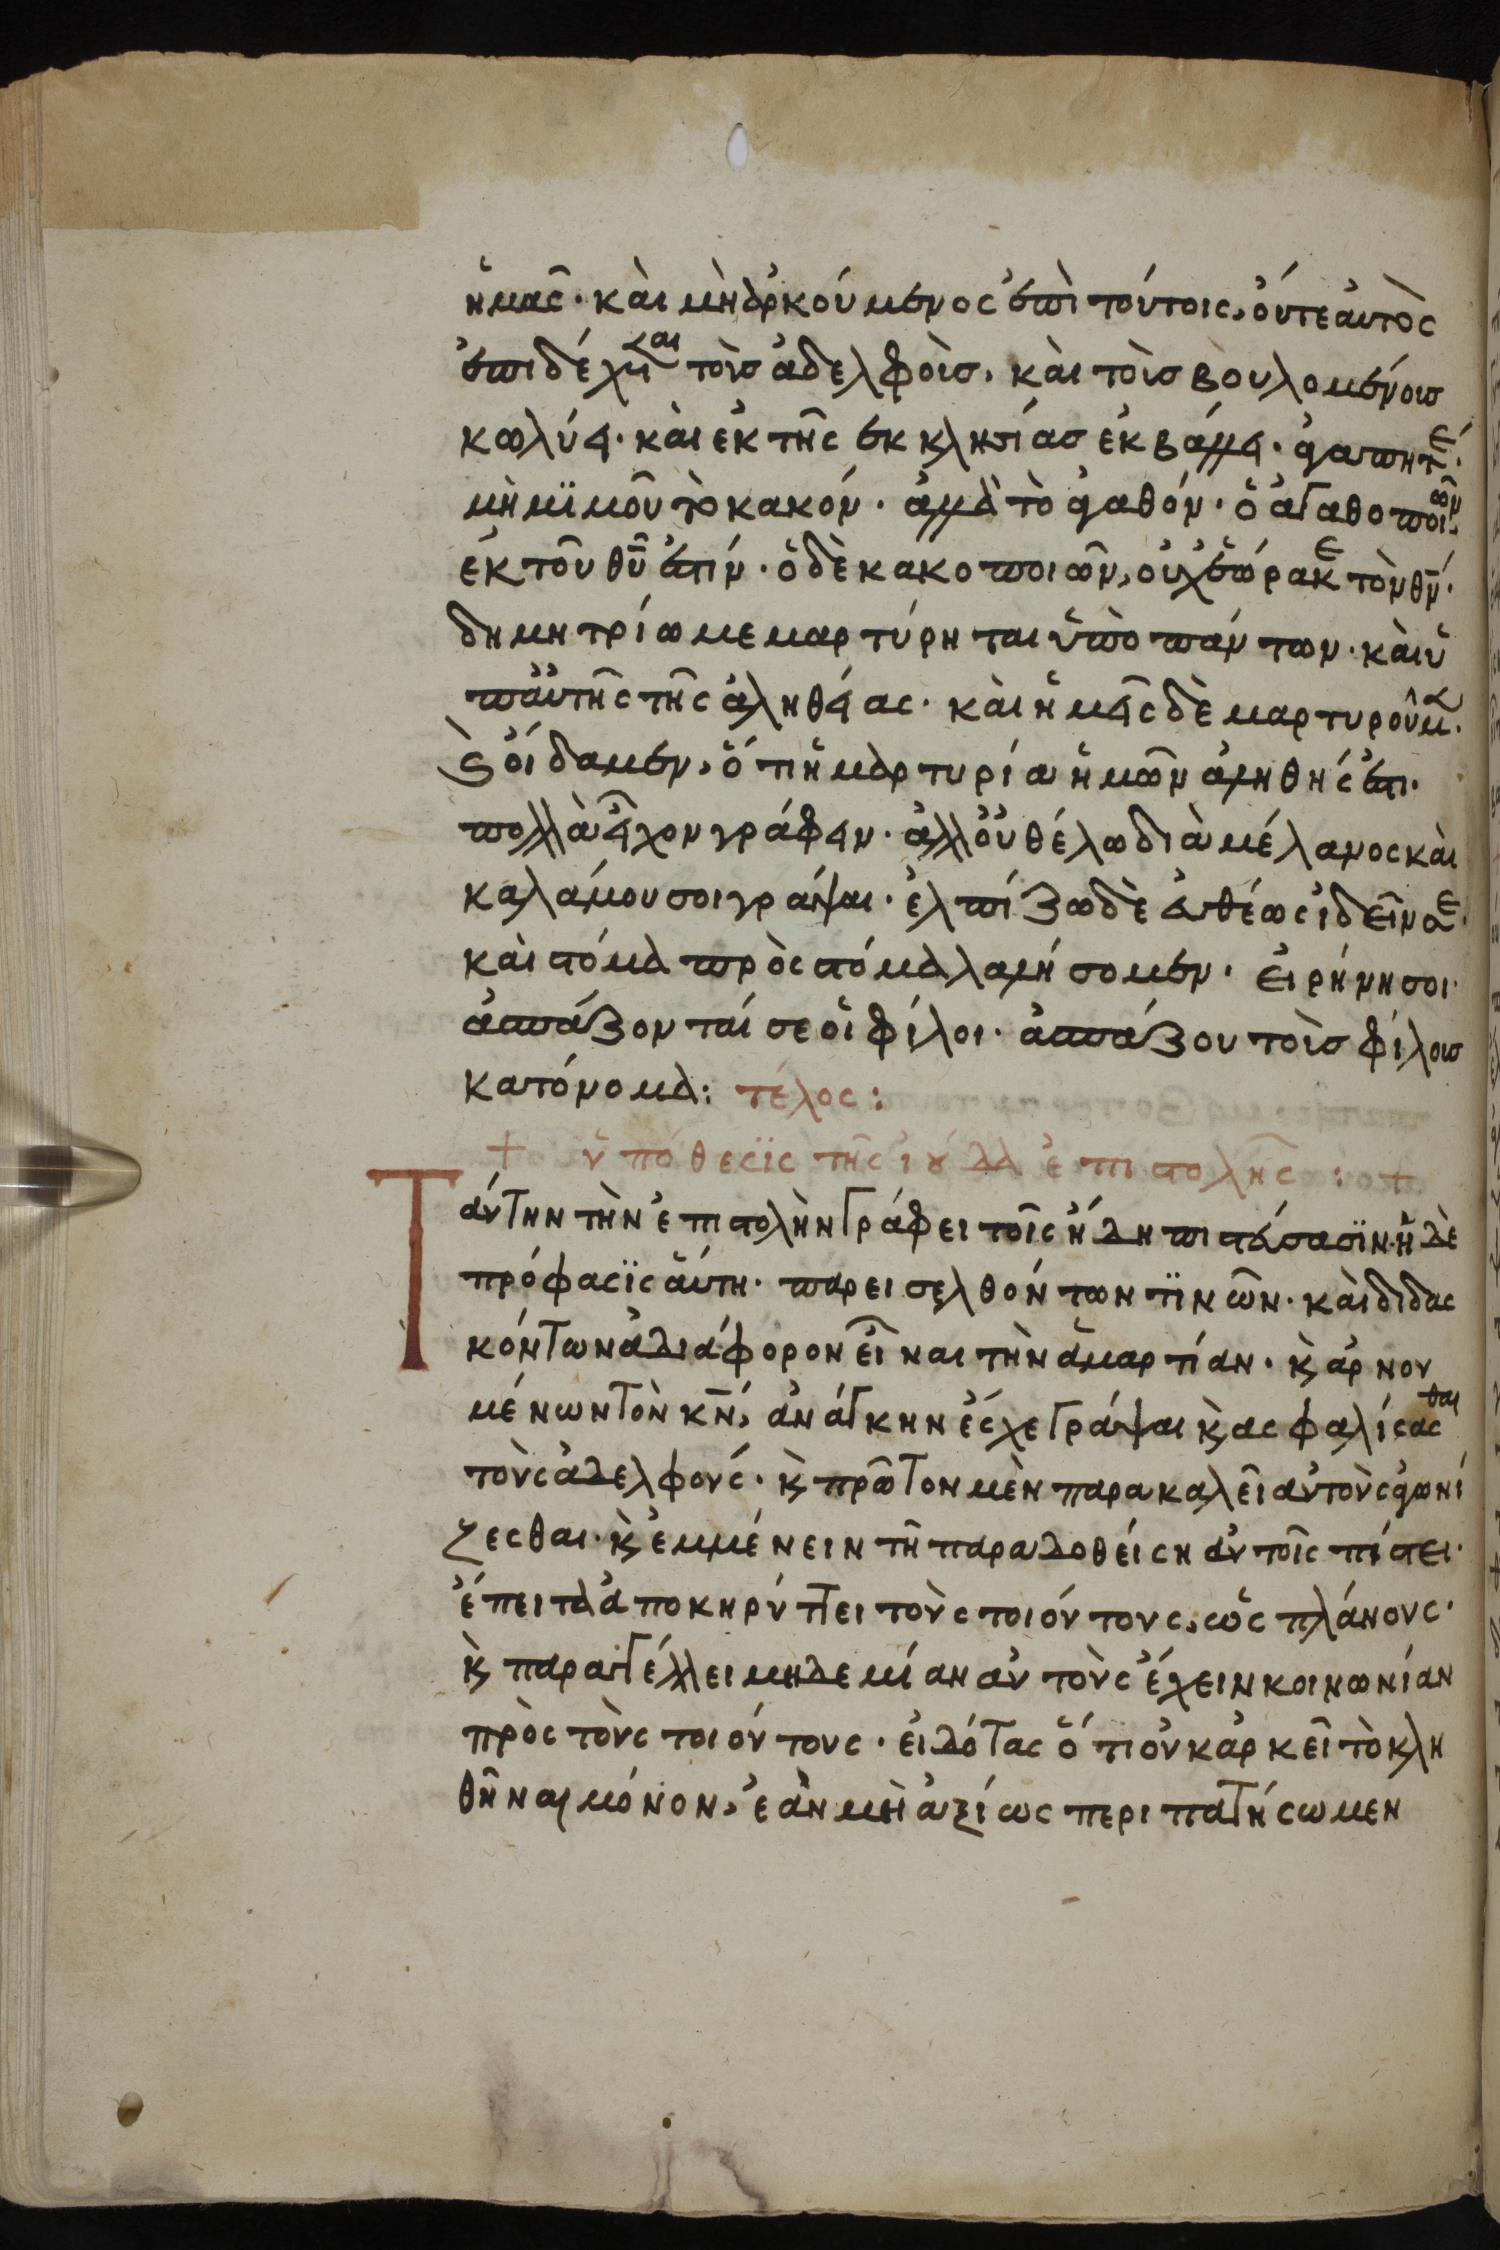 ἡμᾶς· καὶ μὴ ἀρκούμενος ἐπὶ τούτοις, οὔτε αὐτὸς
ἐπιδέχεται τοῖς ἀδελφοῖσ, καὶ τοῖσ βουλομένοισ
κωλύει· καὶ ἐκ τῆς ἐκκλησίασ ἐκβάλλει· ἀγαπητέ·
μὴ μϊμοῦ τὸ κακόν· ἀλλὰ τὸ ἀγαθόν· ὁ ἀγαθοποιῶν
ἐκ τοῦ θῦ ἐστίν· ὁ δὲ κακοποιῶν, οὐχ ἑώρακε τὸν θν·
δημητρίω μεμαρτύρηται ὑπὸ πάντων· καὶ ὑ
π αὐτῆς τῆς ἀληθείας· καὶ ἡμεῖς δὲ μαρτυροῦμεν·
καὶ οἴδαμεν, ὅτι ἡ μαρτυρία ἡμῶν ἀληθής ἐστι·
πολλὰ εἶχον γράφειν· ἀλλ οὐ θέλω διὰ μέλανος καὶ
καλάμου σοι γράψαι· ἐλπίζω δὲ εὐθέως ἰδεῖν σε·
καὶ στόμα πρὸς στόμα λαλήσομεν· εἰρήνη σοι·
ἀσπάζονταί σε οἱ φίλοι· ἀσπάζου τοὺσ φίλουσ
κατόνομα: τέλος:
+ ὑπόθεσϊς τῆς ἰούδα ἐπιστολῆς : +
Ταύτην τὴν ἐπιστολὴν γράφει τοῖς ἤδη πιστεύσασϊν· ἡ δὲ
πρόφασϊς αὕτη· παρεισελθόντων τϊνῶν· καὶ διδας
κόντων ἀδιάφορον εἶναι τὴν ἁμαρτίαν· κ ἀρνου
μένων τὸν κν, ἀνάγκην ἔσχε γράψαι κ ασφαλίσασθαι
τοὺς ἀδελφούς· κ πρῶτον μὲν παρακαλεῖ αὐτοὺς ἀγωνί
ζεσθαι· κ ἐμμένειν τῆ παραδοθείση αὐτοῖς πίστει·
ἔπειτα ἀποκηρύττει τοὺς τοιούτους, ὡς πλάνους·
κ παραγγέλλει μηδεμίαν αὐτοὺς ἔχειν κοινωνίαν
πρὸς τοὺς τοιούτους· εἰδότας ὅτι οὐκ ἀρκεῖ τὸ κλη
θῆναι μόνον, ἐὰν μὴ ἀξίως περιπατήσωμεν